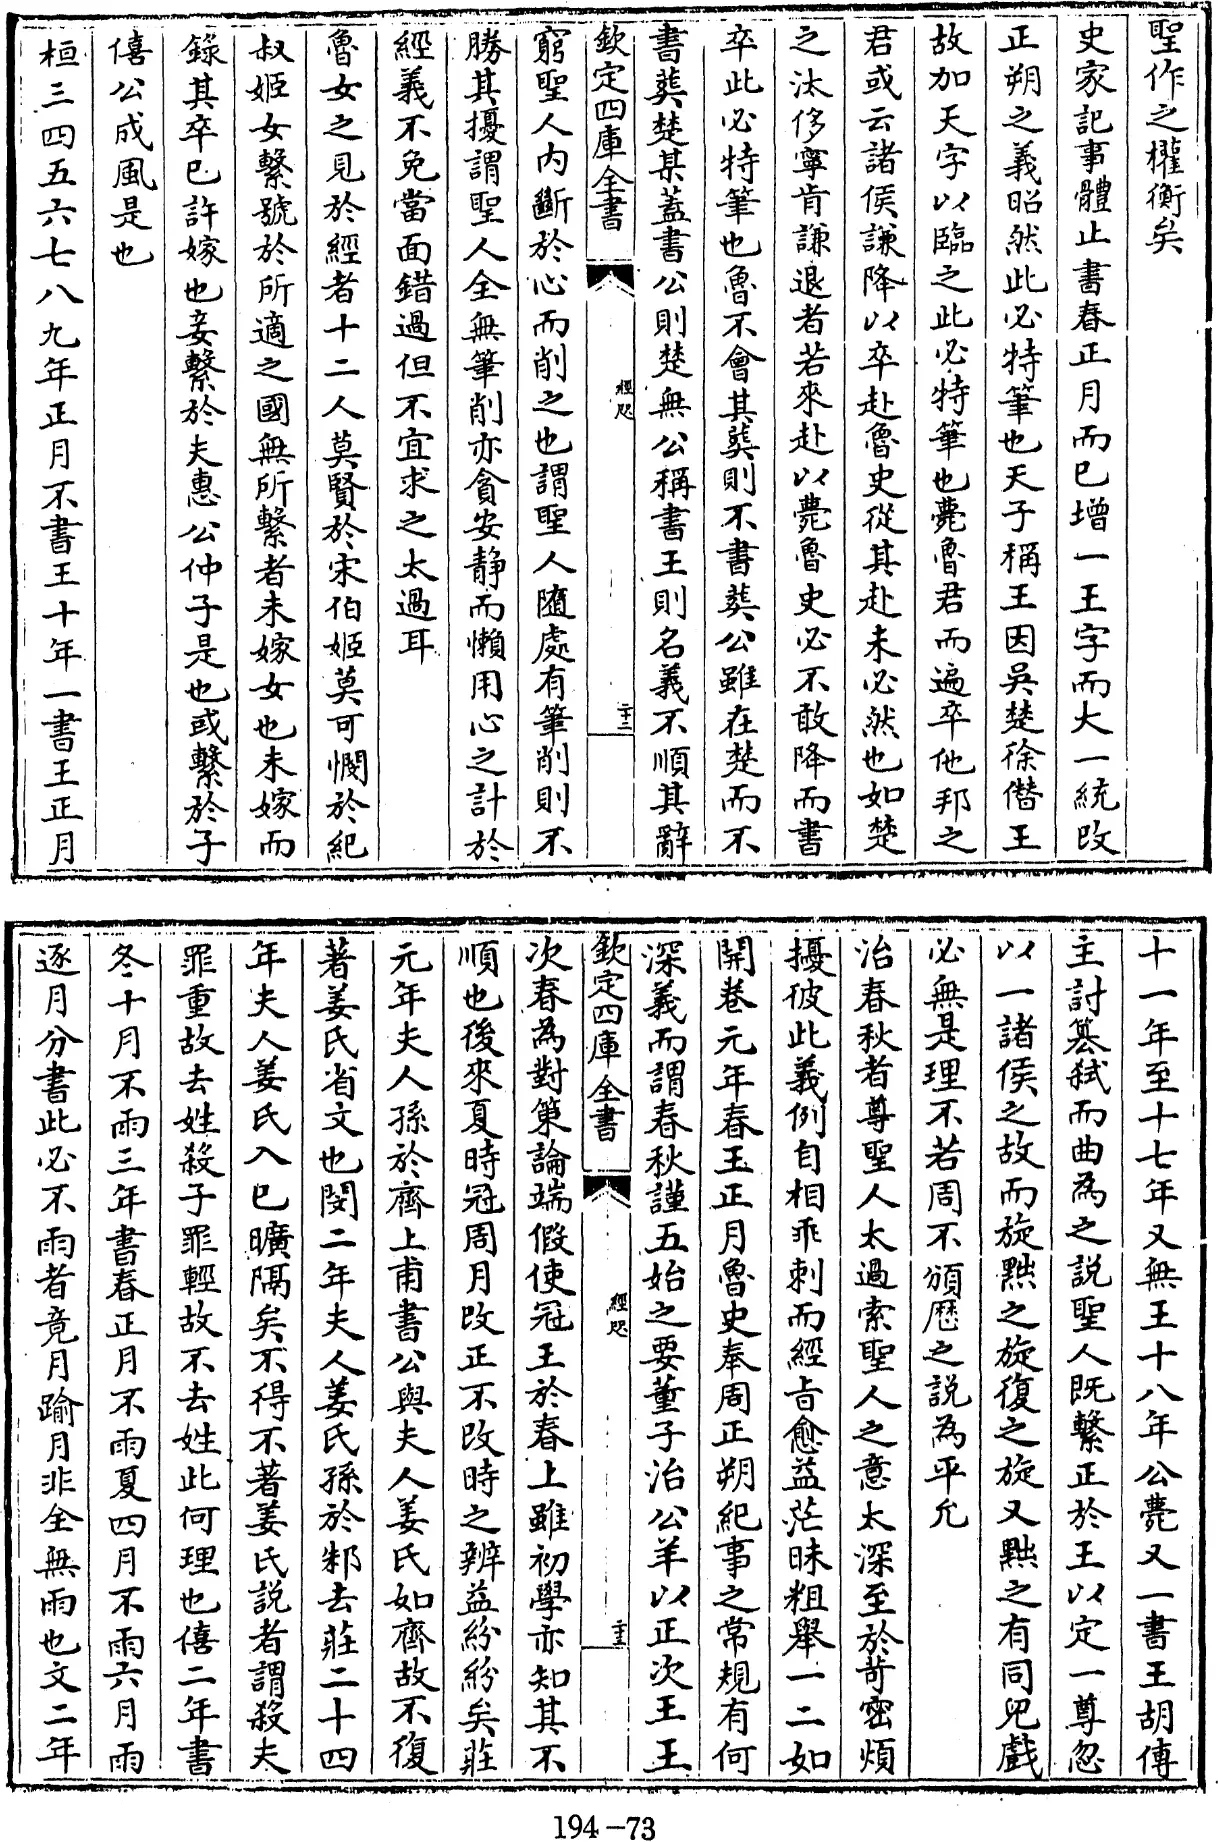 聖作之權衡矣
史家記事體止書春正月而已增一王字而大一統改
正朔之義昭然此必特筆也天子稱王因吳楚徐僭王
故加天字以臨之此必特筆也薨魯君而遍卒他邦之
君或云諸侯謙降以卒赴魯史從其赴未必然也如楚
之汰侈寧肯謙退者若來赴以薨魯史必不敢降而書
卒此必特筆也魯不會其葬則不書葬公雖在楚而不
書葬楚某蓋書公則楚無公稱書王則名義不順其辭
欽定四庫全書
經咫
二十二
窮聖人內斷於心而削之也謂聖人隨處有筆削則不
勝其擾謂聖人全無筆削亦貪安靜而懶用心之計於
經義不免當面錯過但不宜求之太過耳
魯女之見於經者十二人莫賢於宋伯姬莫可憫於紀
叔姬女繫號於所適之國無所繫者未嫁女也未嫁而
錄其卒已許嫁也妾繫於夫惠公仲子是也或繫於子
僖公成風是也
桓三四五六七八九年正月不書王十年一書王正月
十一年至十七年又無王十八年公薨又一書王胡傳
主討簒弑而曲為之說聖人既繫正於王以定一尊忽
以一諸侯之故而旋黜之旋復之旋又黜之有同兒戲
必無是理不若周不頒歷之說為平允
治春秋者尊聖人太過索聖人之意太深至於苛密煩
擾彼此義例自相乖剌而經旨愈益茫昧粗舉一二如
開卷元年春王正月魯史奉周正朔紀事之常規有何
深義而謂春秋謹五始之要董子治公羊以正次王王
欽定四庫全書
經咫
二十三
次春為對策論端假使冠王於春上雖初學亦知其不
順也後來夏時冠周月改正不改時之辨益紛紛矣莊
元年夫人孫於齊上甫書公與夫人姜氏如齊故不復
著姜氏省文也閔二年夫人姜氏孫於邾去莊二十四
年夫人姜氏入已曠隔矣不得不著姜氏說者謂殺夫
罪重故去姓殺子罪輕故不去姓此何理也僖二年書
冬十月不雨三年書春正月不雨夏四月不雨六月雨
逐月分書此必不雨者竟月踰月非全無雨也文二年
194-73